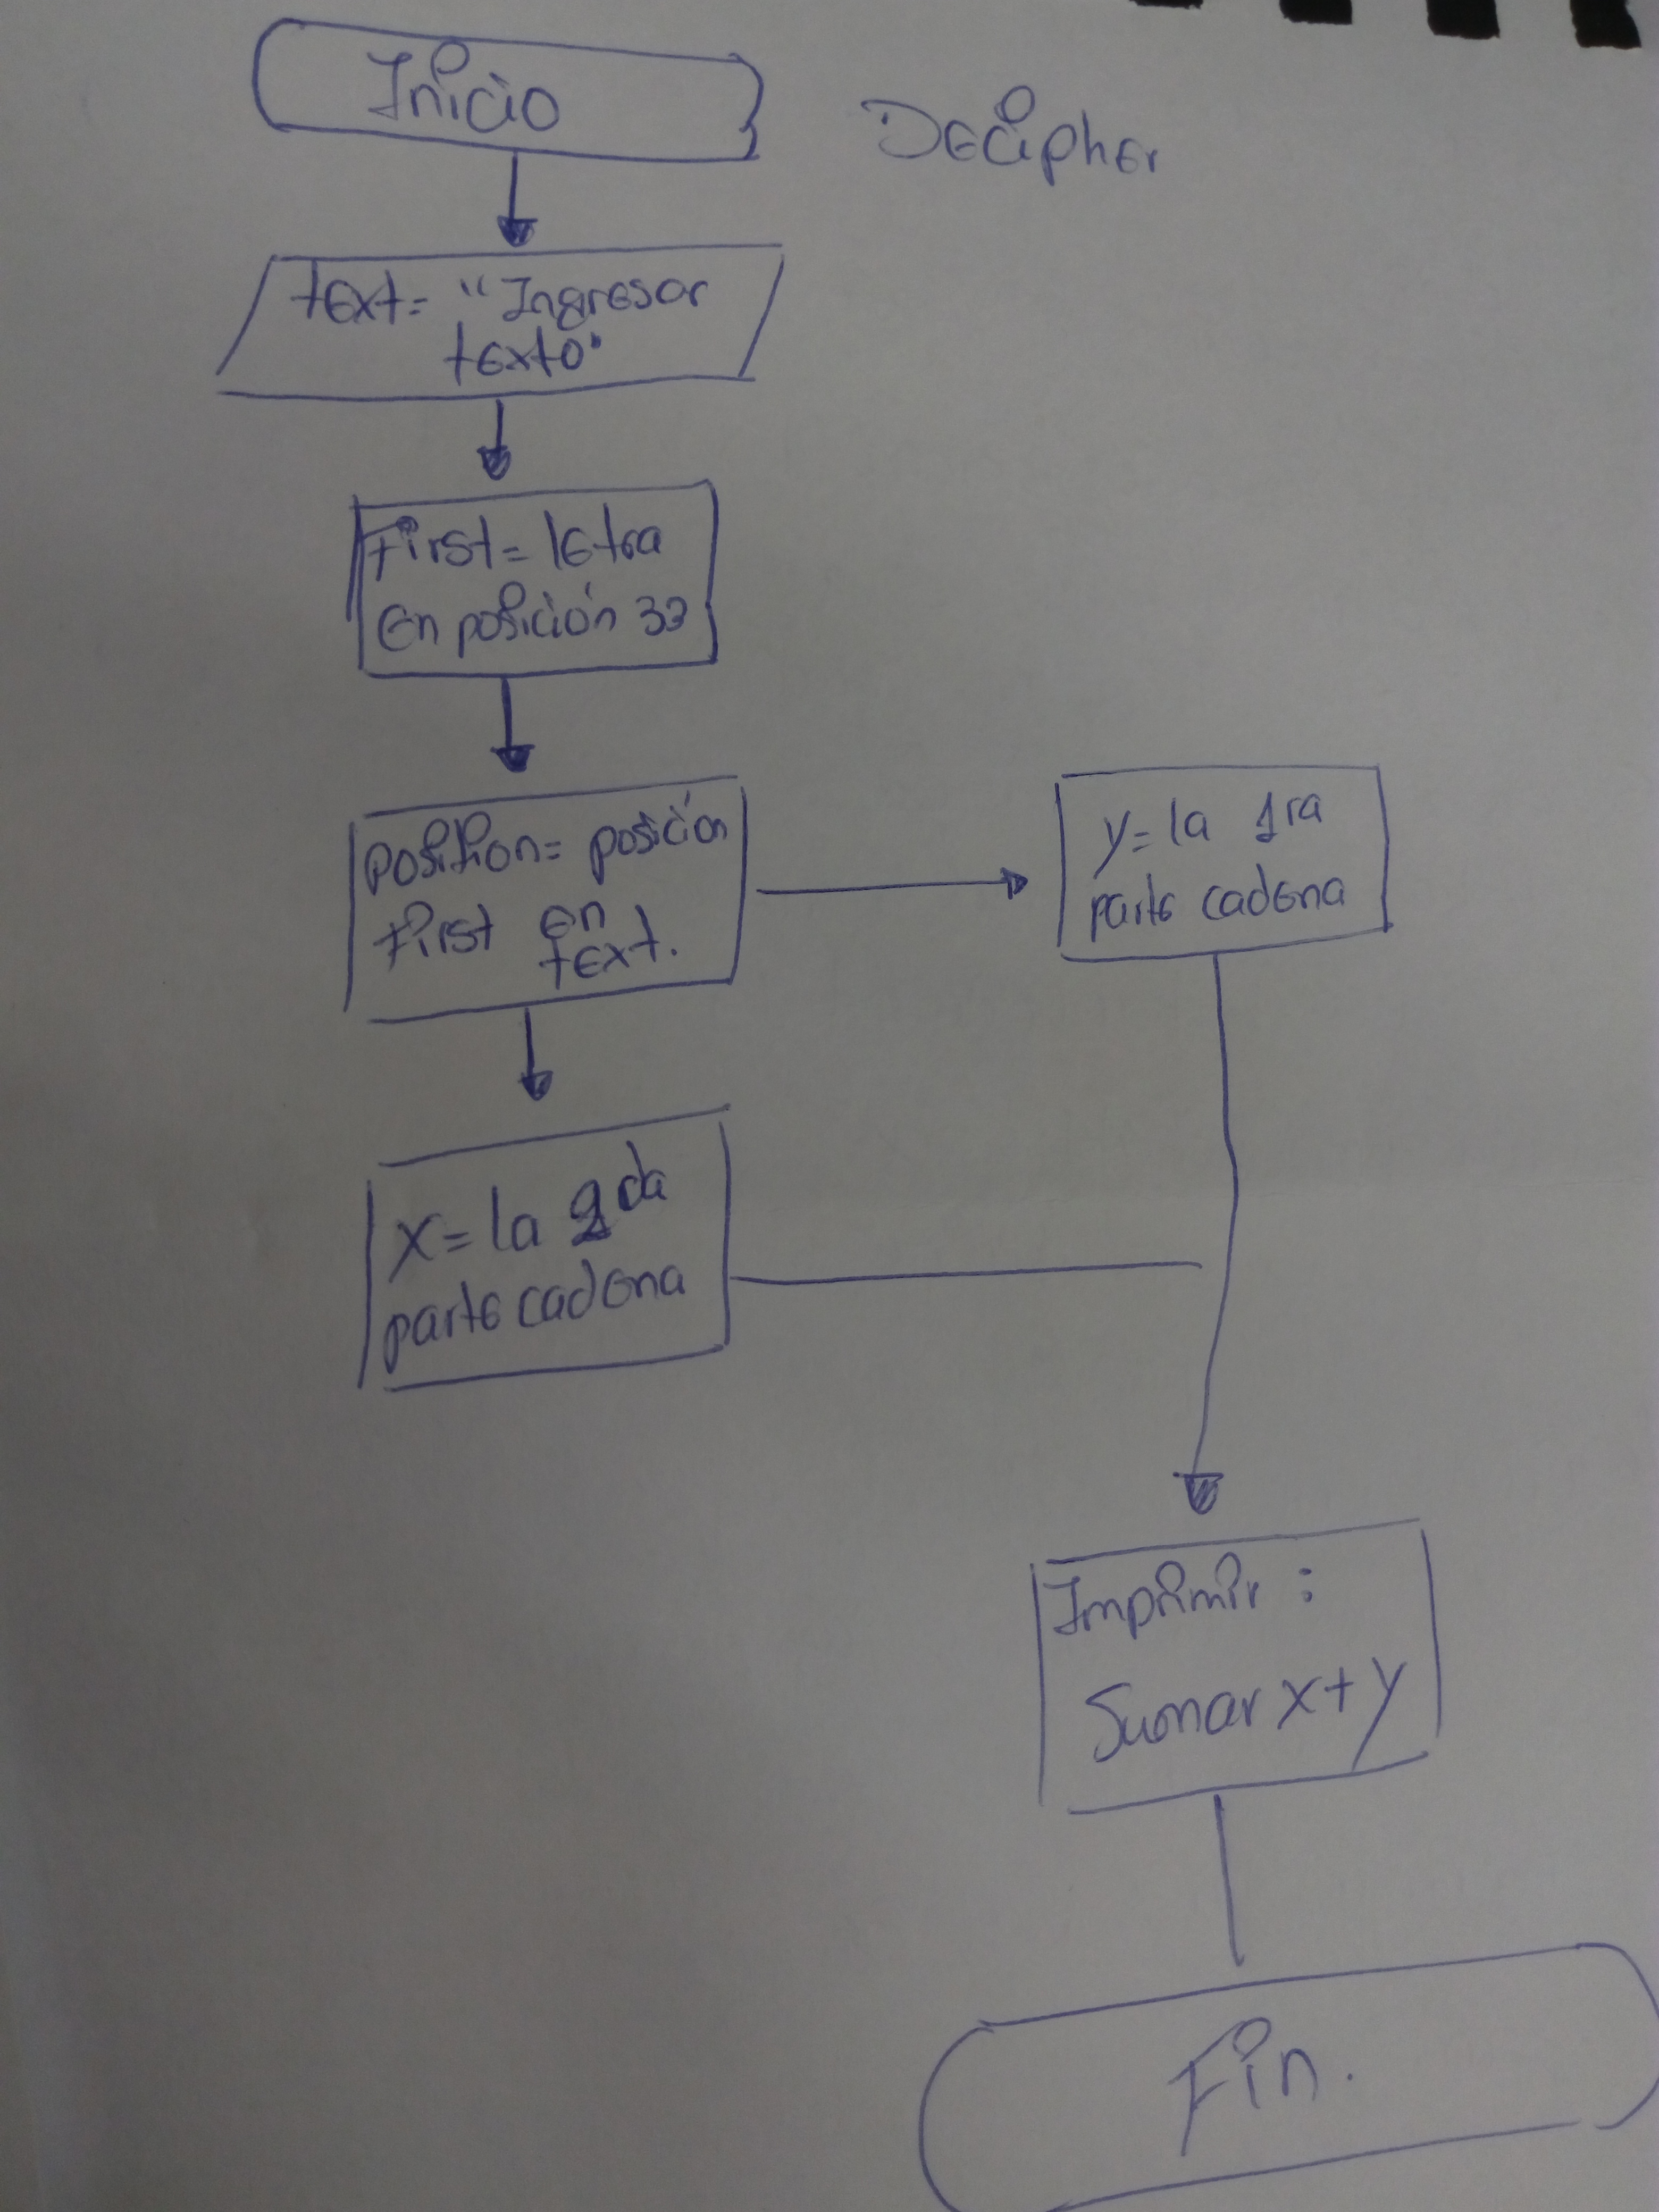 Inicio
Decipher
text= "Ingresar
texto"
first= letra
en posición 33
position= posición
first en
text.
y= la 1ra
parte cadena
x= la 2da
parte cadena
Imprimir :
Sumar x+y
Fin.